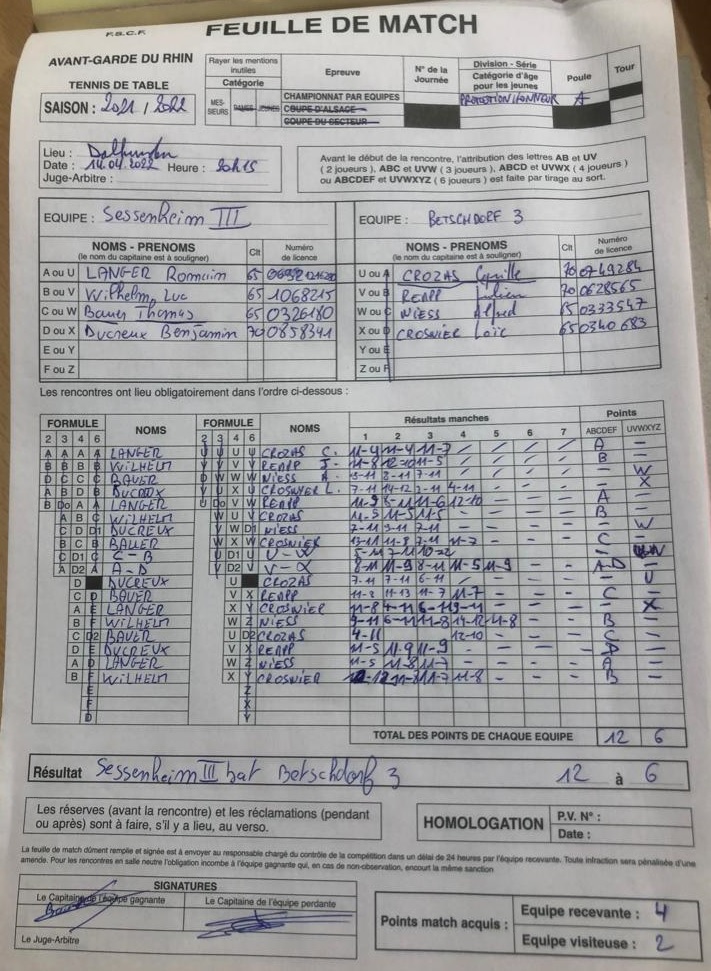 F.S.C.F. FEUILLE DE MATCH
AVANT-GARDE DU RHIN
TENNIS DE TABLE
SAISON : 2021 / 2022
Rayer les mentions inutiles
Catégorie
MES-SIEURS DAMES JEUNES
Epreuve
CHAMPIONNAT PAR EQUIPES
COUPE D'ALSACE
COUPE DU SECTEUR
N° de la Journée
Division - Série
Catégorie d'âge pour les jeunes
PROMOTION HONNEUR
Poule
A
Tour
Lieu : Dalhunden
Date : 14.04.2022 Heure : 20h15
Juge-Arbitre :
Avant le début de la rencontre, l'attribution des lettres AB et UV
(2 joueurs), ABC et UVW (3 joueurs), ABCD et UVWX (4 joueurs)
ou ABCDEF et UVWXYZ (6 joueurs) est faite par tirage au sort.
EQUIPE : Sessenheim III
EQUIPE : BETSCHDORF 3
NOMS - PRENOMS Clt Numéro de licence
(le nom du capitaine est à souligner)
NOMS - PRENOMS Clt Numéro de licence
(le nom du capitaine est à souligner)
A ou U LANGER Romain 65
U ou A CROZAS Cyrille 70 0749284
B ou V Wilhelm Luc 65 1068215
V ou B REAPP Julien 70 0628565
C ou W Bauer Thomas 65 0326180
W ou C NIESS Alfred 65 0333547
D ou X Ducreux Benjamin 70 0858341
X ou D CROSNIER Loïc 65 0340683
E ou Y
Y ou E
F ou Z
Z ou F
Les rencontres ont lieu obligatoirement dans l'ordre ci-dessous :
FORMULE NOMS FORMULE NOMS Résultats manches Points
2 3 4 6 2 3 4 6 1 2 3 4 5 6 7 ABCDEF UVWXYZ
A A A A LANGER U U U U CROZAS C. 11-4 11-4 11-7 / / / / A —
B B B B WILHELM V V V V REAPP J. 11-8 12-10 11-5 / / / / B —
D C C C BAUER W W W NIESS A. 8-11 7-11 / / / / — W
A B D B DUCREUX V X U CROSNIER L. 7-11 14-12 4-11 — X
B Do A A LANGER U Do V W REAPP 11-9 11-6 12-10 A —
A B C WILHELM W U V CROZAS 11-5 11-5 B —
C D D1 DUCREUX V W D1 NIESS 7-11 7-11 — W
B C B BAUER W X W CROSNIER 11-8 7-11 11-7 C —
C D1 C C-B U D1 U U-W 5-11 7-11
A D2 A A-D V D2 V V-X 8-11 11-9 8-11 11-5 11-9 AD —
D DUCREUX U CROZAS 7-11 7-11 6-11 — U
C D BAUER V X REAPP 11-13 11-7 11-7 C —
A E LANGER X Y CROSNIER 11-8 — X
B F WILHELM W Z NIESS 9-11 6-11 11-8 14-12 11-8 B —
C D2 BAUER U D2 CROZAS 4-11 12-10 C —
D E DUCREUX V X REAPP 11-5 11-9 11-9 D —
A D LANGER W Z NIESS 11-5 11-8 11-7 A —
B F WILHELM X Y CROSNIER 11-7 11-8 B —
E Z
F X
D Y
TOTAL DES POINTS DE CHAQUE EQUIPE 12 6
Résultat Sessenheim III bat Betschdorf 3 12 à 6
Les réserves (avant la rencontre) et les réclamations (pendant
ou après) sont à faire, s'il y a lieu, au verso.
HOMOLOGATION P.V. N° :
Date :
La feuille de match dûment remplie et signée est à envoyer au responsable chargé du contrôle de la compétition dans un délai de 24 heures par l'équipe recevante. Toute infraction sera pénalisée d'une
amende. Pour les rencontres en salle neutre l'obligation incombe à l'équipe gagnante qui, en cas de non-observation, encourt la même sanction
SIGNATURES
Le Capitaine de l'équipe gagnante Le Capitaine de l'équipe perdante
Le Juge-Arbitre
Points match acquis : Equipe recevante : 4
Equipe visiteuse : 2